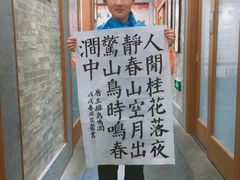 人閒桂花落夜
靜春山空月出
驚山鳥時鳴春
澗中
唐王維鳥鳴澗